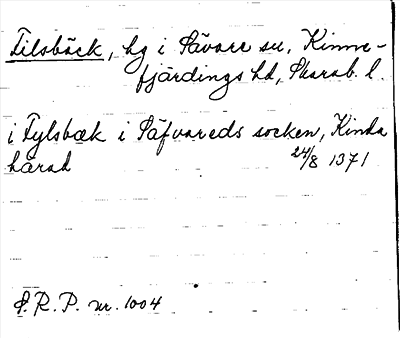 Tilsbäck, hg i Sävare sn, Kinne-
fjärdings hd, Skarab. l.
i Tylsbæk i Säfvareds socken, Kinda
härad 24/8 1371
S.R.P. nr. 1004